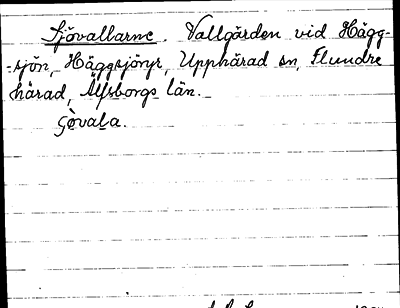 Sjövallarne. Vallgården vid Hägg-
-sjön, Häggsjöryr, Upphärad sn, Flundre
härad, Älfsborgs län.
Gòvala.